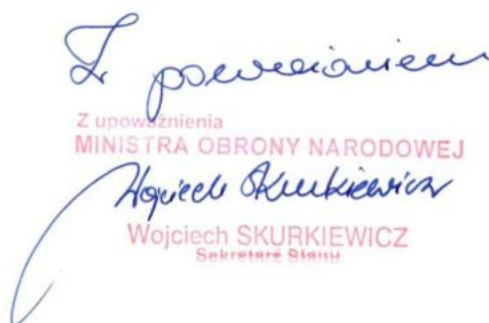 Z poważaniem
Z upoważnienia
MINISTRA OBRONY NARODOWEJ
Wojciech Skurkiewicz
Wojciech SKURKIEWICZ
Sekretarz Stanu